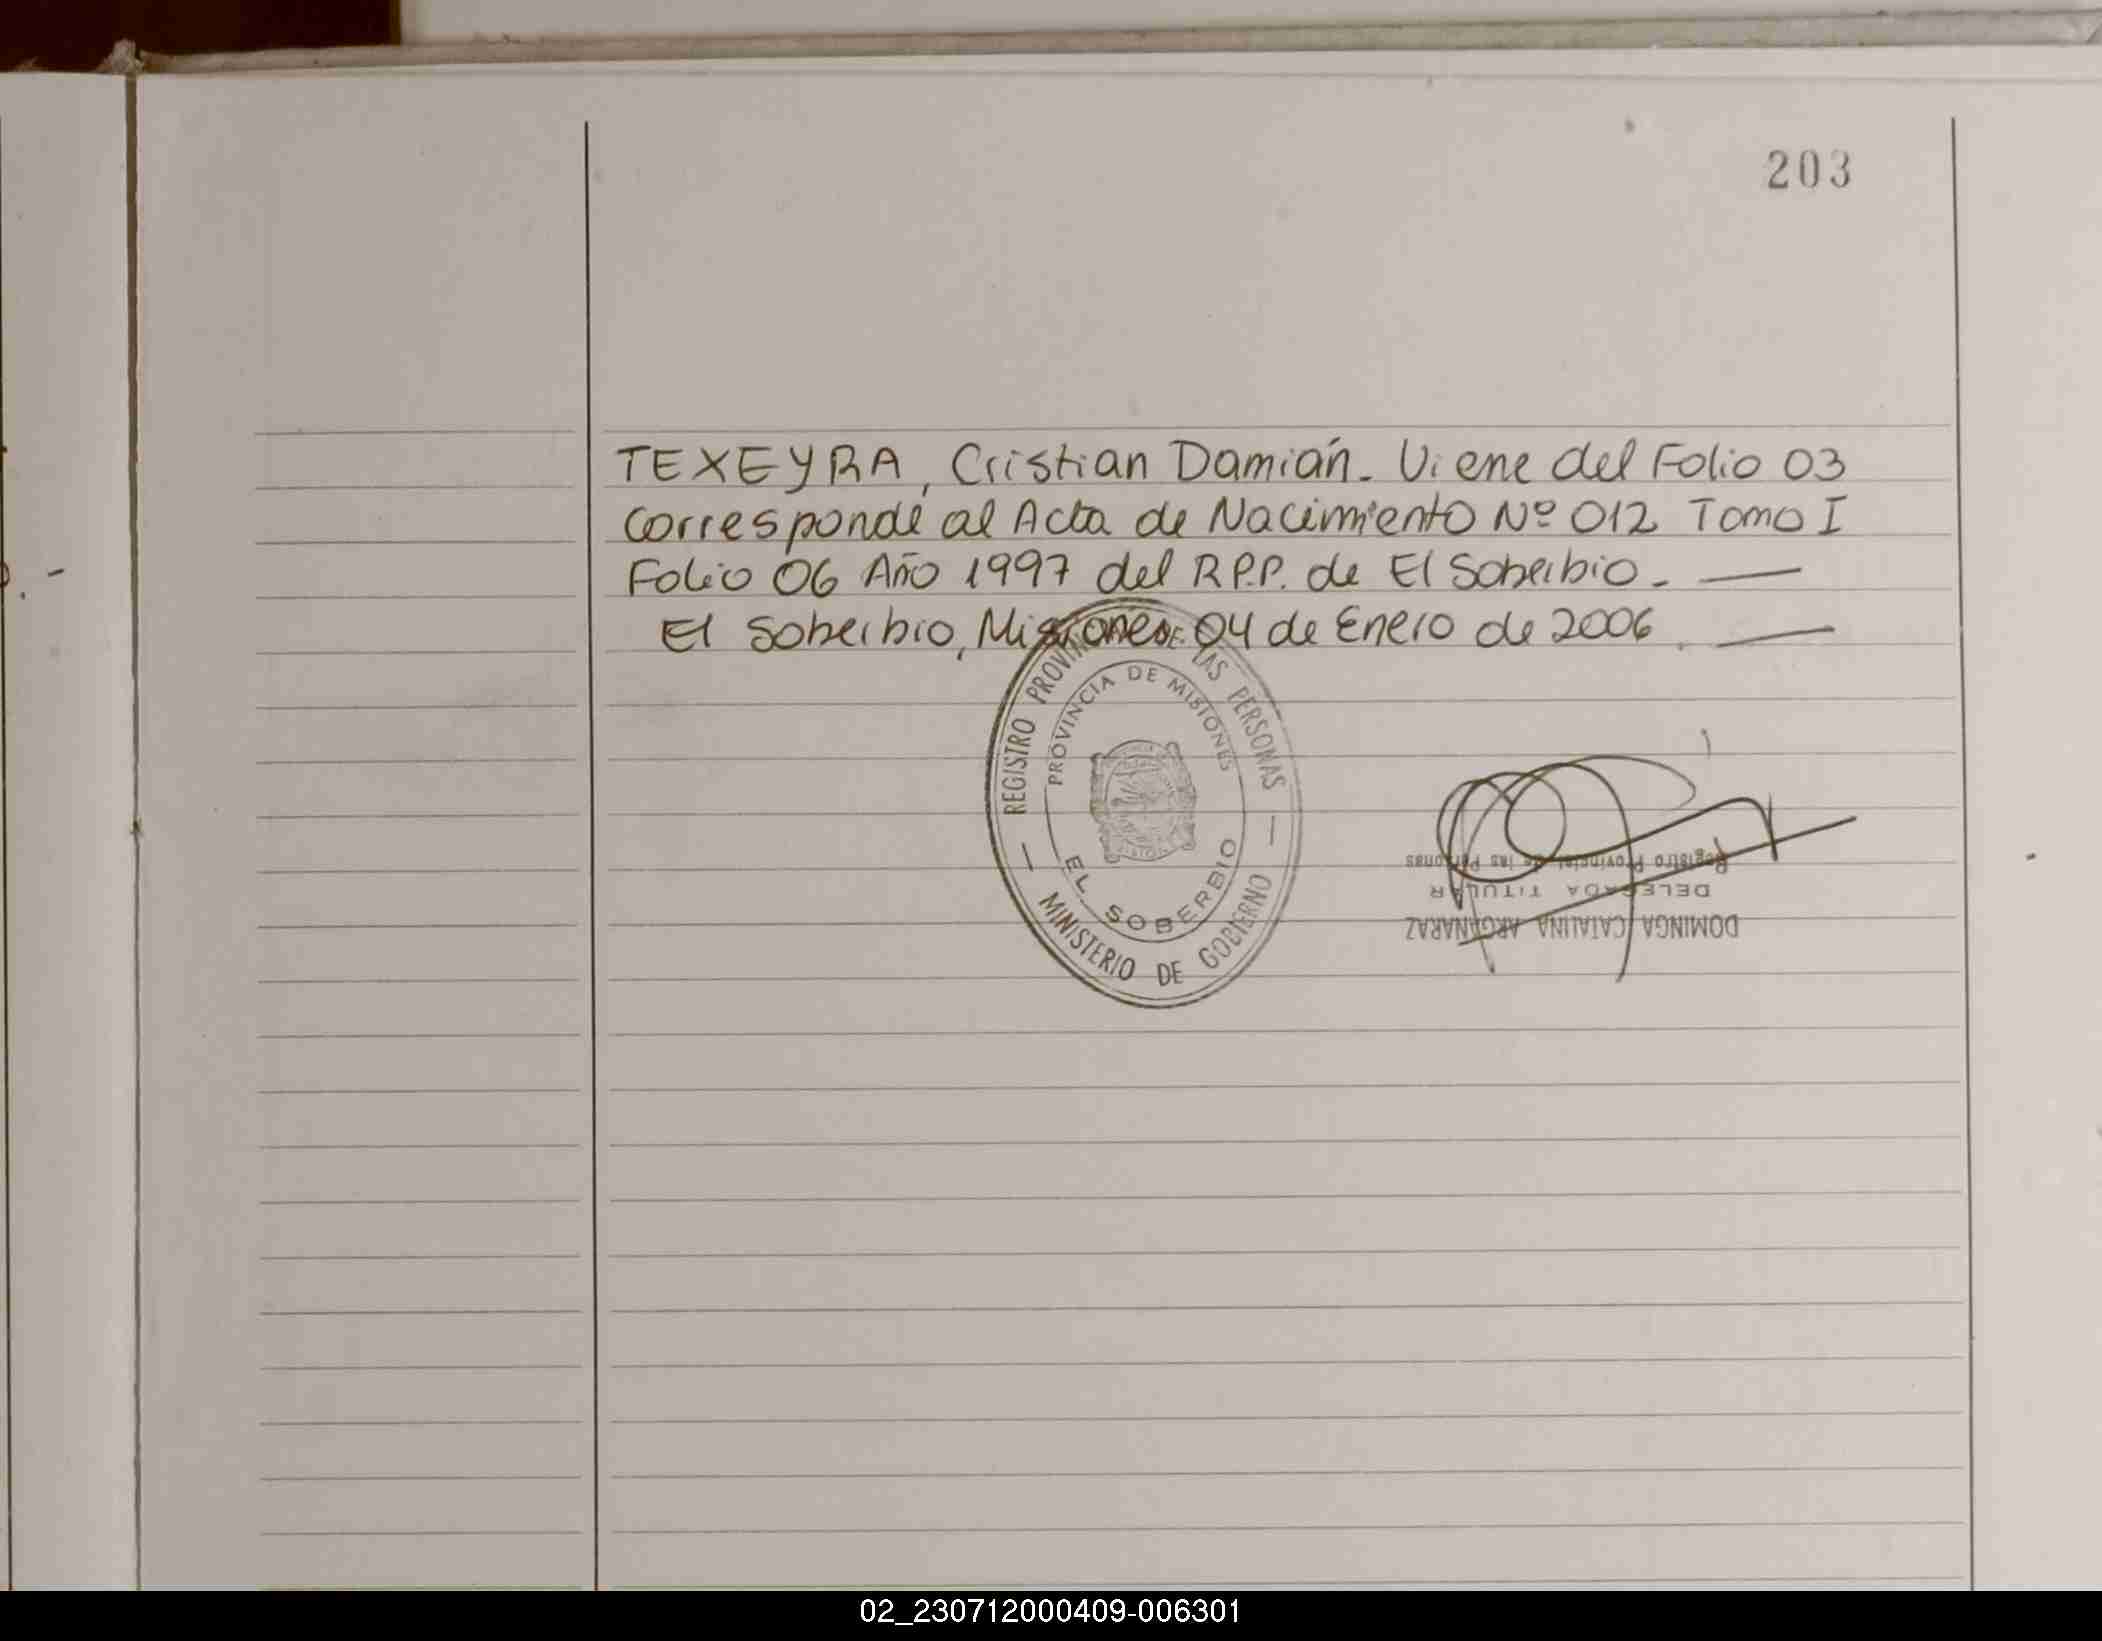 203
TEXEYRA, Cristian Damián. Viene del Folio 03
Corresponde al Acta de Nacimiento Nº 012 Tomo I
Folio 06 Año 1997 del R.P.P. de El Soberbio. —
El Soberbio, Misiones 04 de Enero de 2006. —
REGISTRO PROVINCIAL DE LAS PERSONAS
PROVINCIA DE MISIONES
EL SOBERBIO
— MINISTERIO DE GOBIERNO —
DOMINGA CATALINA ARGAÑARAZ
DELEGADA TITULAR
Registro Provincial de las Personas
02_230712000409-006301